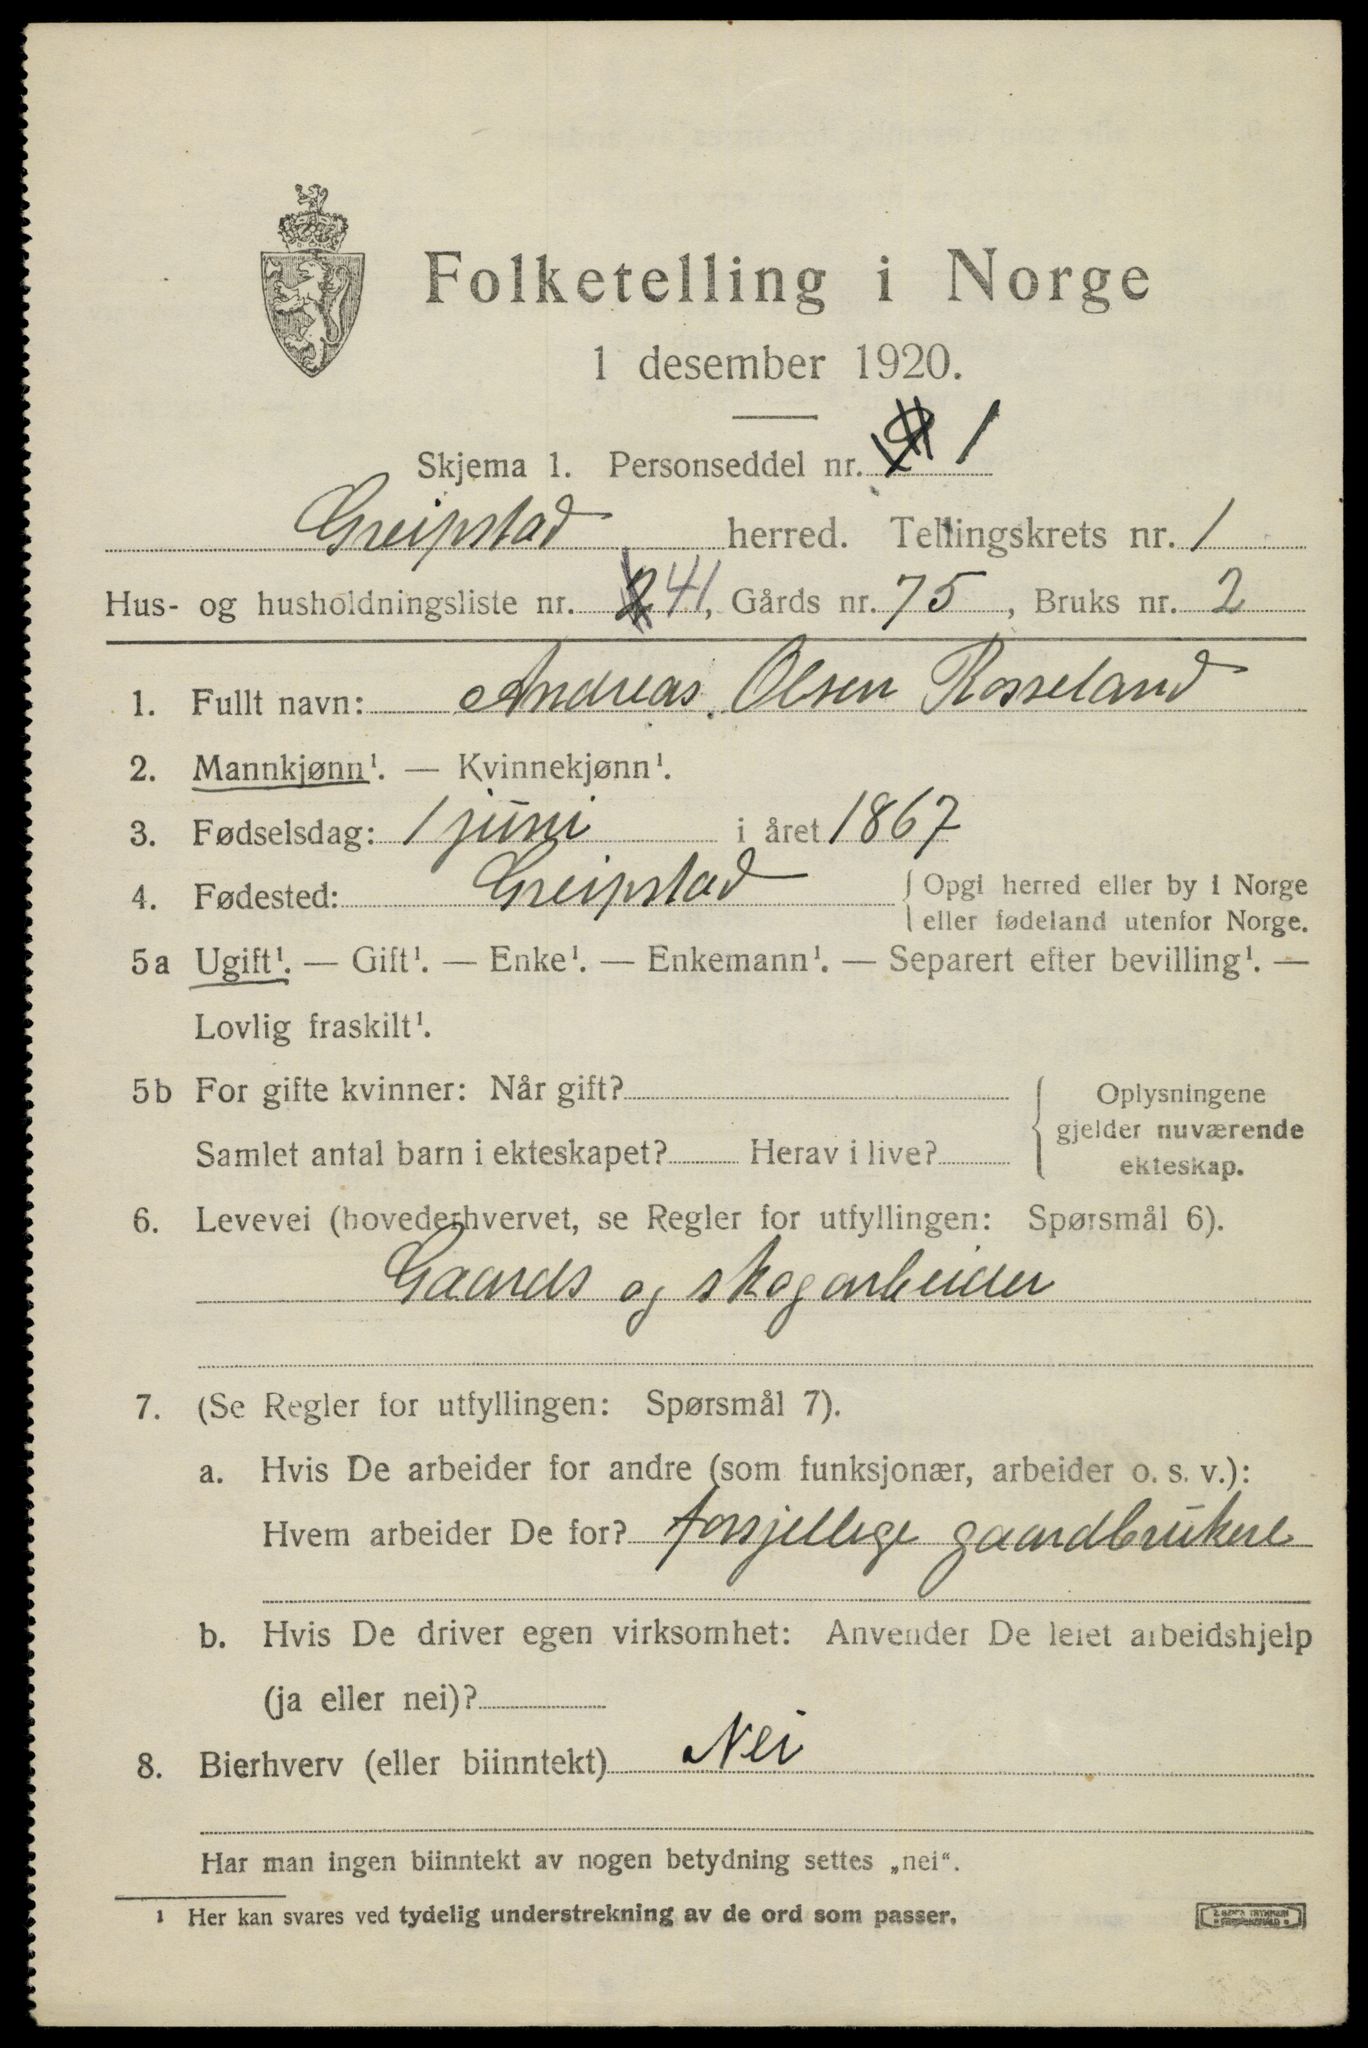 Folketelling i Norge
1 desember 1920.
Skjema 1. Personseddel nr. 1
Greipstad herred. Tellingskrets nr. 1
Hus- og husholdningsliste nr. 41, Gårds nr. 75, Bruks nr. 2
1. Fullt navn: Andreas Olsen Rosseland
2. Mannkjønn¹. — Kvinnekjønn¹.
3. Fødselsdag: 1 juni i året 1867
4. Fødested: Greipstad { Opgi herred eller by i Norge
eller fødeland utenfor Norge.
5a Ugift¹. — Gift¹. — Enke¹. — Enkemann¹. — Separert efter bevilling¹. —
Lovlig fraskilt¹.
5b For gifte kvinner: Når gift? { Oplysningene
gjelder nuværende
Samlet antal barn i ekteskapet? Herav i live? ekteskap.
6. Levevei (hovederhvervet, se Regler for utfyllingen: Spørsmål 6).
Gaards og skogarbeider
7. (Se Regler for utfyllingen: Spørsmål 7).
a. Hvis De arbeider for andre (som funksjonær, arbeider o. s. v.):
Hvem arbeider De for? forsjellige gaardbrukere
b. Hvis De driver egen virksomhet: Anvender De leiet arbeidshjelp
(ja eller nei)?
8. Bierhverv (eller biinntekt) Nei
Har man ingen biinntekt av nogen betydning settes „nei“.
¹ Her kan svares ved tydelig understrekning av de ord som passer.